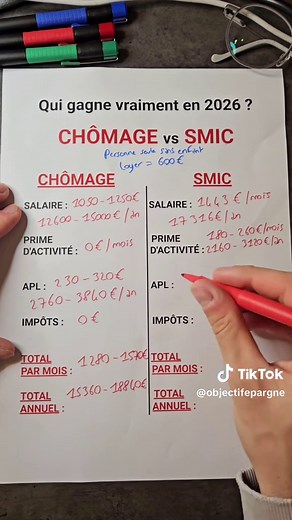 Qui gagne vraiment en 2026 ?
CHÔMAGE vs SMIC
Personne seule sans enfant
loyer = 600€
CHÔMAGE
SALAIRE : 1050-1250€
12600-15000€/an
PRIME
D'ACTIVITÉ : 0€/mois
APL : 230-320€
2760-3840€/an
IMPÔTS : 0€
TOTAL
PAR MOIS : 1280-1570€
TOTAL
ANNUEL : 15360-18840€
SMIC
SALAIRE : 1443€/mois
17316€/an
PRIME 180-260€/mois
D'ACTIVITÉ : 2160-3120€/an
APL :
IMPÔTS :
TOTAL
PAR MOIS :
TOTAL
ANNUEL :
TikTok
@objectifepargne